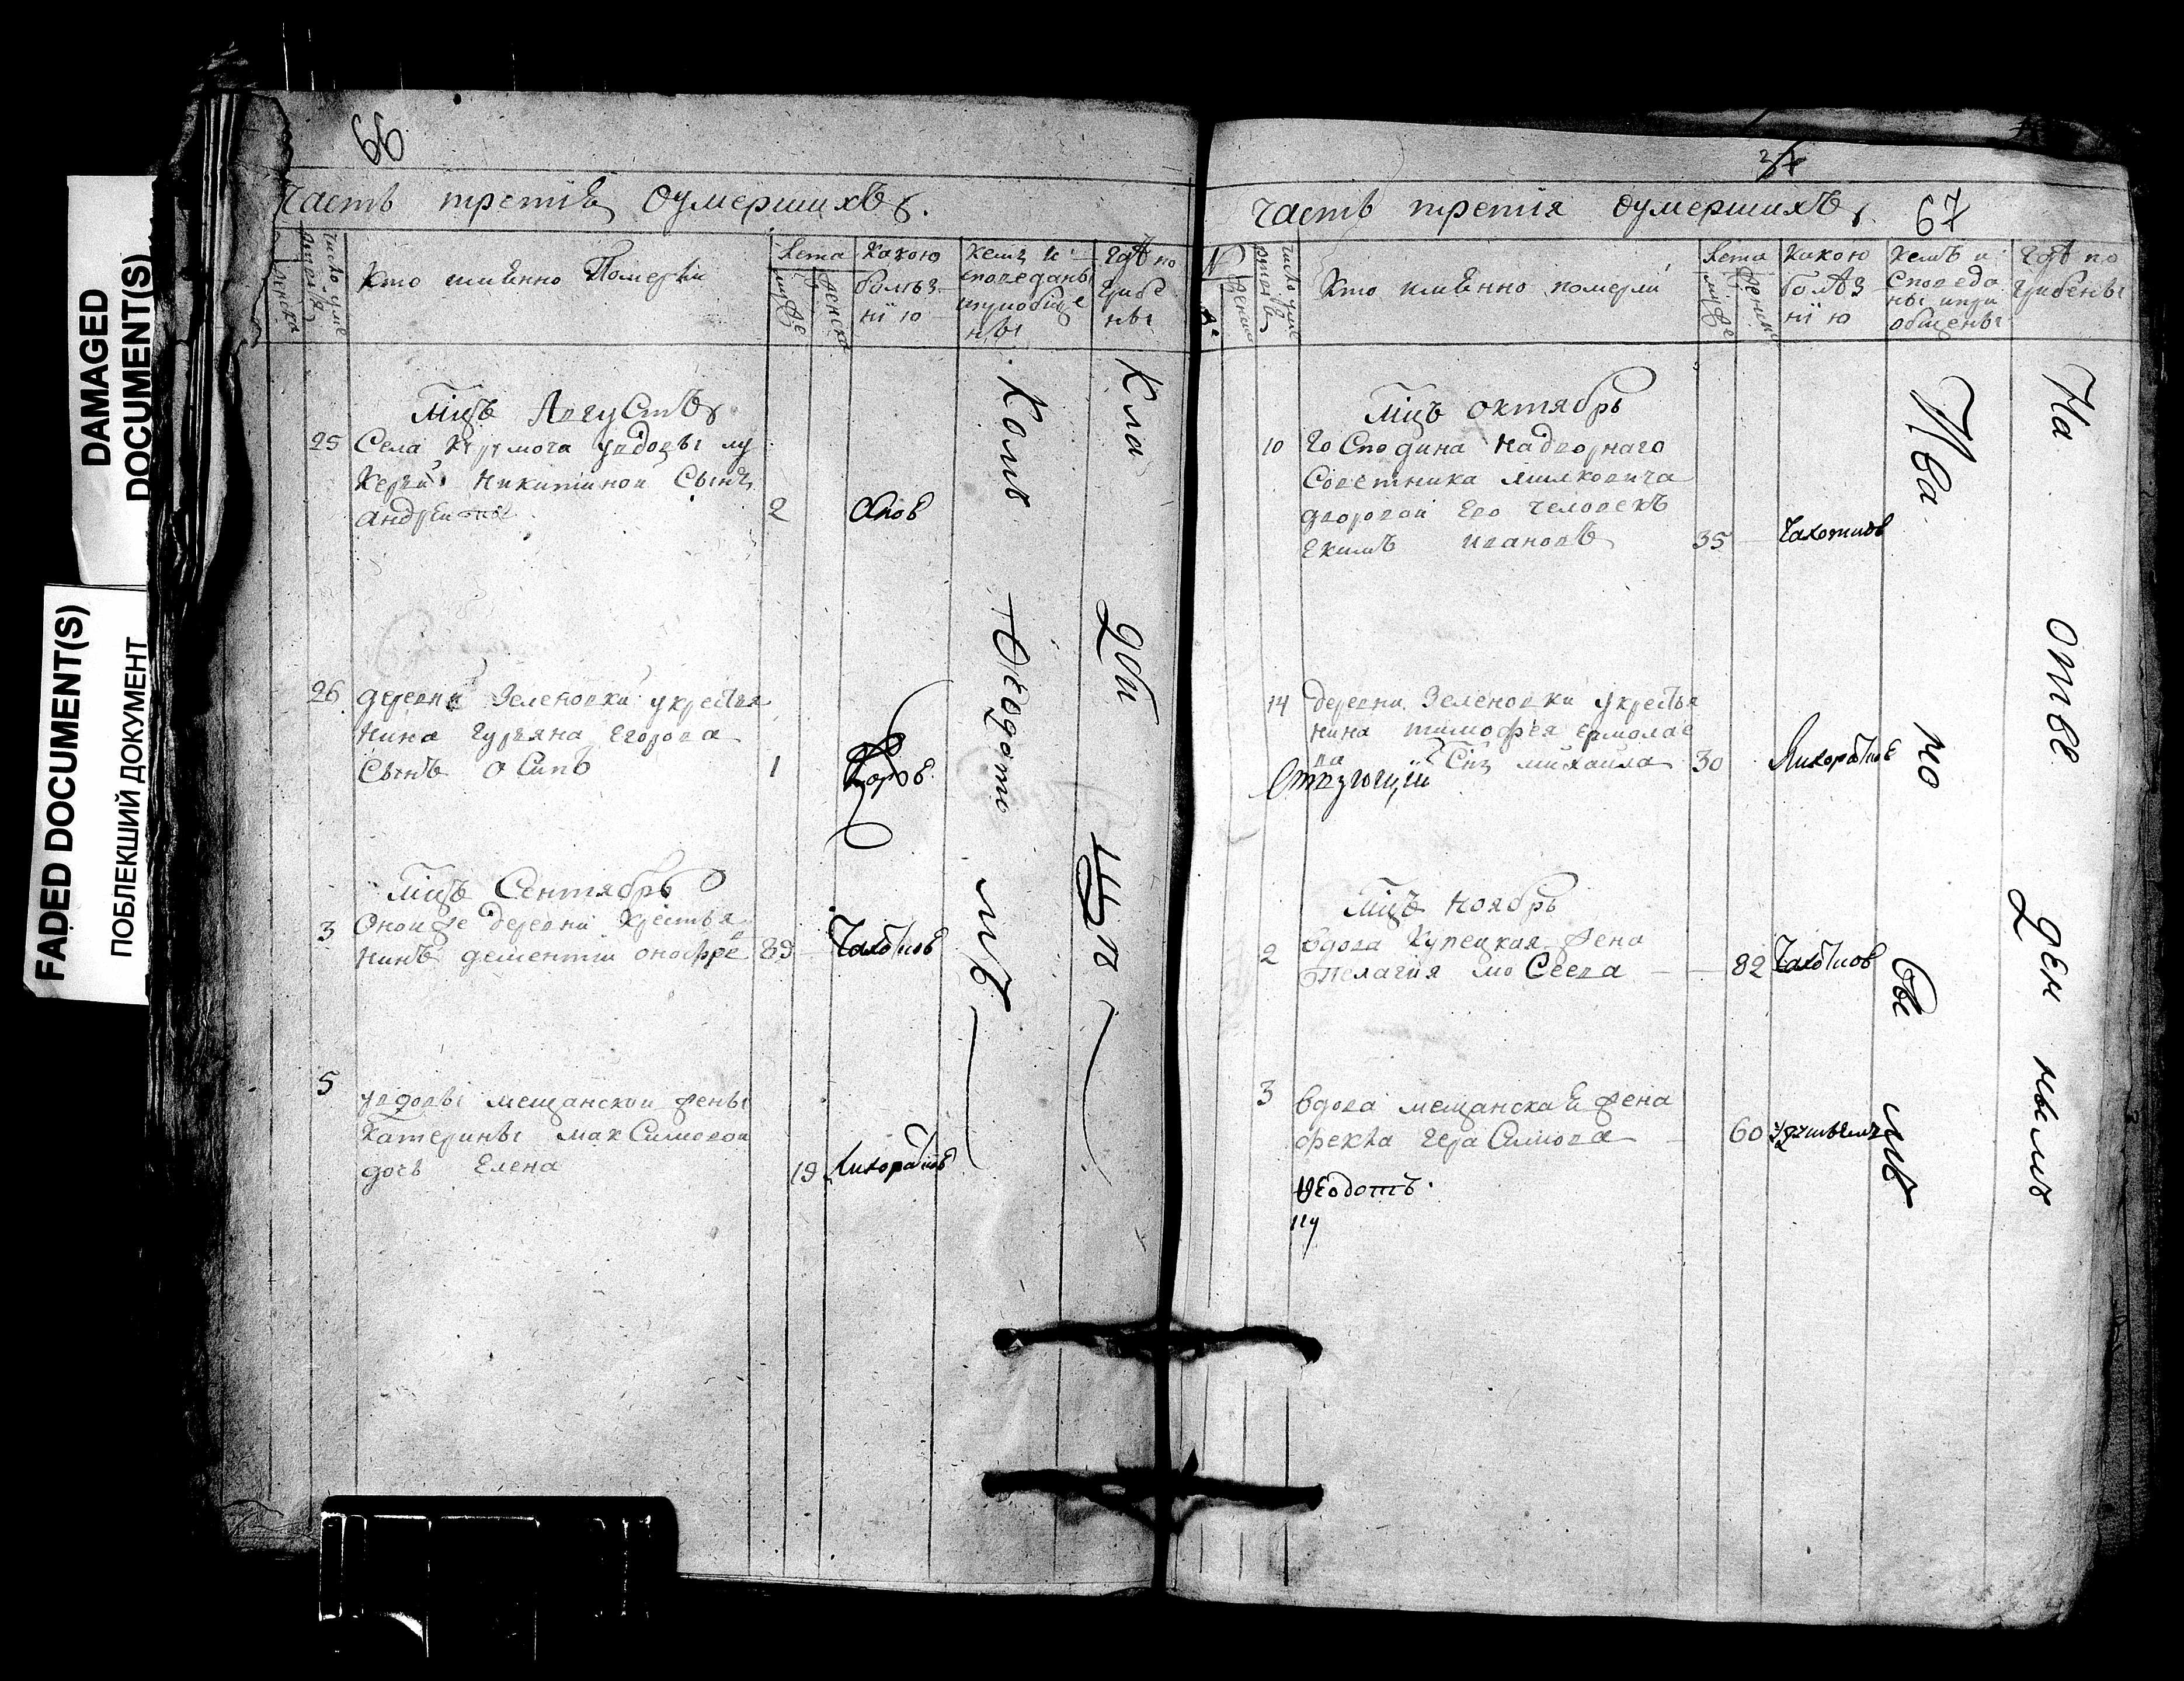 DAMAGED
DOCUMENT(S)
FADED DOCUMENT(S)
ПОБЛЕКШИЙ ДОКУМЕНТ
66
часть третія оумершихъ
число
Кто имянно Померли
Лета
мужеска
женска
Какою
болѣз
ні ю
Кемъ и
споведаны
ипріобще
ны
Гдѣ по
гребе
ны
Мцъ Августъ
25 Села Курумоча у вдовы лу
керьи Никитиной Сынъ
андрей 2
26 деревни Зеленовки укрестья
нина Гурьяна Егорова
Сынъ оСипъ 1
Мцъ Сентябрь
3 Оной же деревни Крестья
нинъ дементіи онофрѣ 89 Чахоткой
5 у вдовы мещанской жены
Катерины макСимовой
дочь Елена 19 Лихораткой
Кла дби
67
часть третія оумершихъ
№
женска
число
Кто имянно померли
Лета
мужеска
женска
Какою
болѣз
ні ю
Кемъ и
споведа
ны ипри
общены
Гдѣ по
гребены
Мцъ октябрь
10 ГоСподина Надворнаго
Советника милковича
дворовой Его человекъ
Екимъ Ивановъ 35 Чахоткой
14 деревни Зеленовки укрестья
нина тимофея Ермолае
ва Снъ михаила 30 Лихораткой
Мцъ Ноябрь
2 вдова Купецкая жена
Пелагія моСеева 82 Чахоткой
3 вдова мещанская жена
фекла ГераСимова 60
Ѳеодотъ
Ива но вы мъ
На отве ден ныхъ